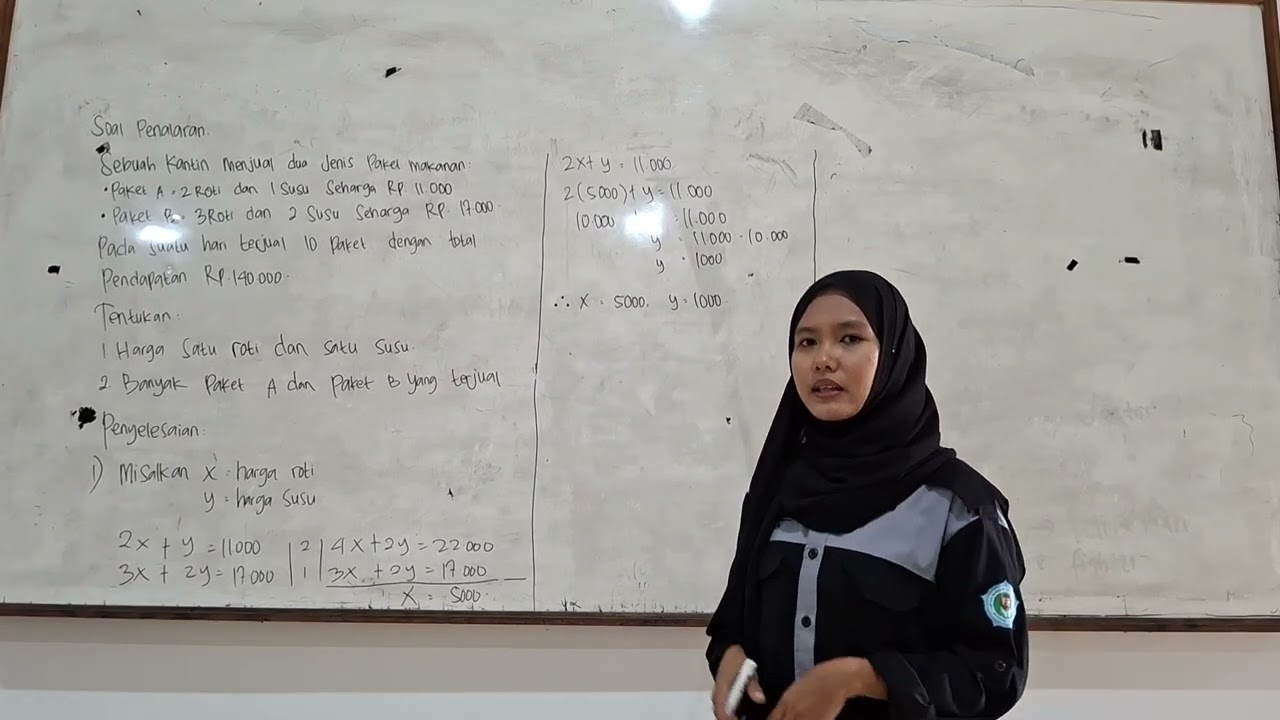 Soal Penalaran.
Sebuah Kantin menjual dua jenis Paket makanan:
• Paket A = 2 Roti dan 1 Susu Seharga RP. 11.000
• Paket B = 3 Roti dan 2 Susu Seharga RP. 17.000.
Pada suatu hari terjual 10 Paket dengan total
Pendapatan RP. 140.000.
Tentukan:
1 Harga Satu roti dan satu susu.
2 Banyak Paket A dan Paket B yang terjual
Penyelesaian:
1) Misalkan x = harga roti
y = harga Susu
2x + y = 11000 | 2 | 4x + 2y = 22000
3x + 2y = 17000 | 1 | 3x + 2y = 17000 —
x = 5000
2x + y = 11.000
2(5000) + y = 11.000
10.000 = 11.000
y = 11.000 - 10.000
y = 1000
∴ x = 5000, y = 1000